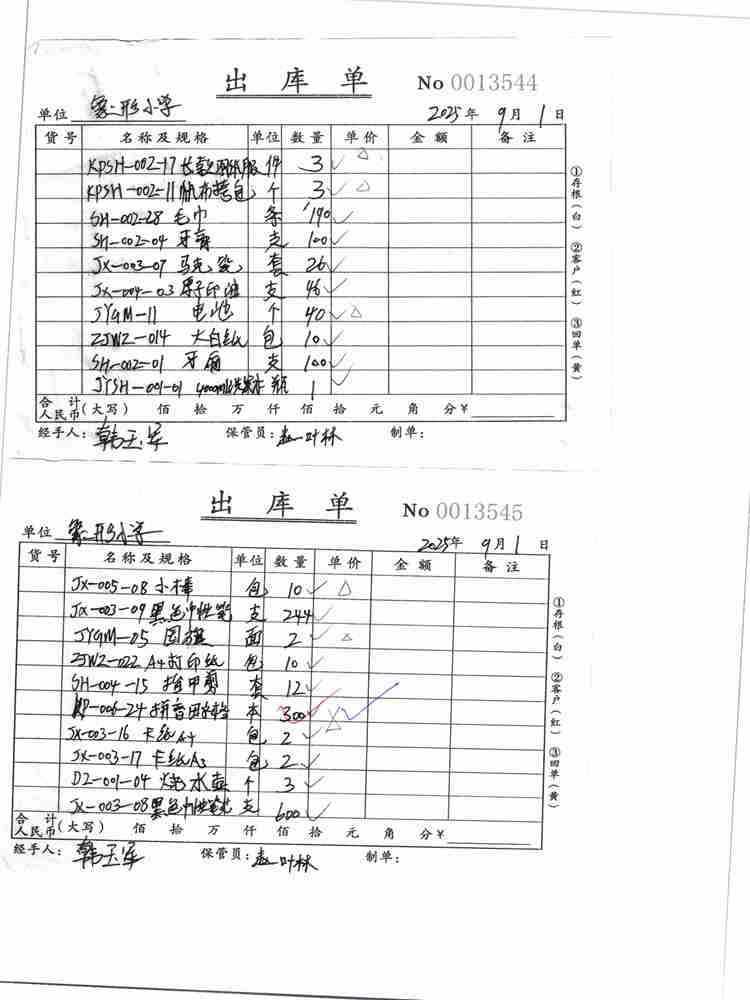 出库单 No 0013544
单位 象形小学 2025年 9月 1日
货号 名称及规格 单位 数量 单价 金额 备注
KPSH-002-17 长款 服 件 3 ✓ △
KPSH-002-11 帆布挎包 个 3 ✓ △
SH-002-28 毛巾 条 190 ✓
SH-002-04 牙膏 支 100 ✓
JX-003-07 马克笔 套 26 ✓
JX-004-03 原子印油 支 46 ✓
JYGM-11 电池 个 40 ✓ △
ZJWZ-014 大白纸 包 10 ✓
SH-002-01 牙刷 支 100 ✓
JYSH-001-01 瓶 1 ✓
合计人民币(大写) 佰 拾 万 仟 佰 拾 元 角 分 ¥
经手人: 韩玉军 保管员: 赵叶林 制单:
①存根(白) ②客户(红) ③回单(黄)
出库单 No 0013545
单位 象形小学 2025年 9月 1日
货号 名称及规格 单位 数量 单价 金额 备注
JX-005-08 小棒 包 10 ✓ △
JX-003-09 黑色中性笔 支 244 ✓
JYGM-05 国旗 面 2 ✓ △
ZJWZ-022 A4打印纸 包 10 ✓
SH-004-15 指甲剪 套 12 ✓
-006-24 拼音田字格 本 300 ✓ △ ✓
JX-003-16 卡纸A4 包 2 ✓
JX-003-17 卡纸A3 包 2 ✓
DZ-001-04 烧水壶 个 3 ✓
JX-003-08 黑色中性笔芯 支 600 ✓
合计人民币(大写) 佰 拾 万 仟 佰 拾 元 角 分 ¥
经手人: 韩玉军 保管员: 赵叶林 制单:
①存根(白) ②客户(红) ③回单(黄)